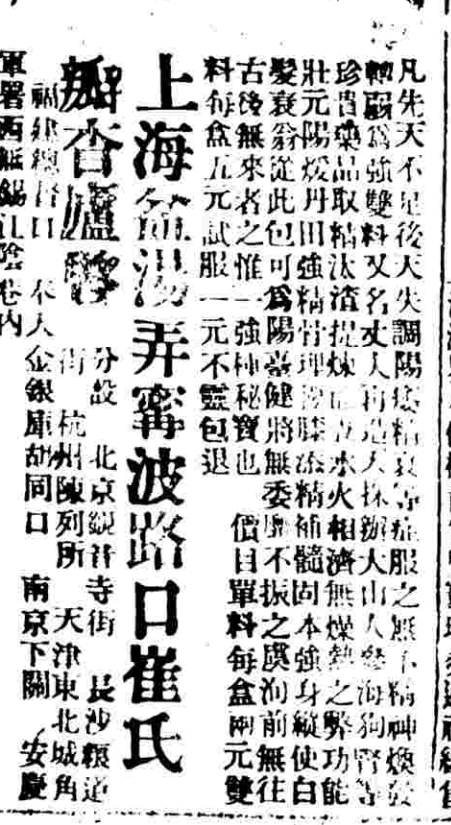 凡先天不足後天失調陽痿精衰等症服之無不精神煥發
轉弱爲強雙料又名丈人再造大採辦大山人參海狗腎等
珍貴藥品取精汰渣提煉水火相濟無燥熱之弊功能
壯元陽煖丹田強精骨理腰膝添精補髓固本強身縱使白
髮衰翁從此包可爲陽臺健將無委靡不振之虞洵前無往
古後無來者之惟一強種秘寶也 價目單料每盒兩元雙
料每盒五元試服一元不靈包退
上海盆湯弄甯波路口崔氏
瓣香廬 分設 北京觀音寺街 長沙糧道
街 杭州陳列所 天津東北城角
福建總督口 奉天金銀庫胡同口 南京下關 安慶
軍署西無錫江陰巷內